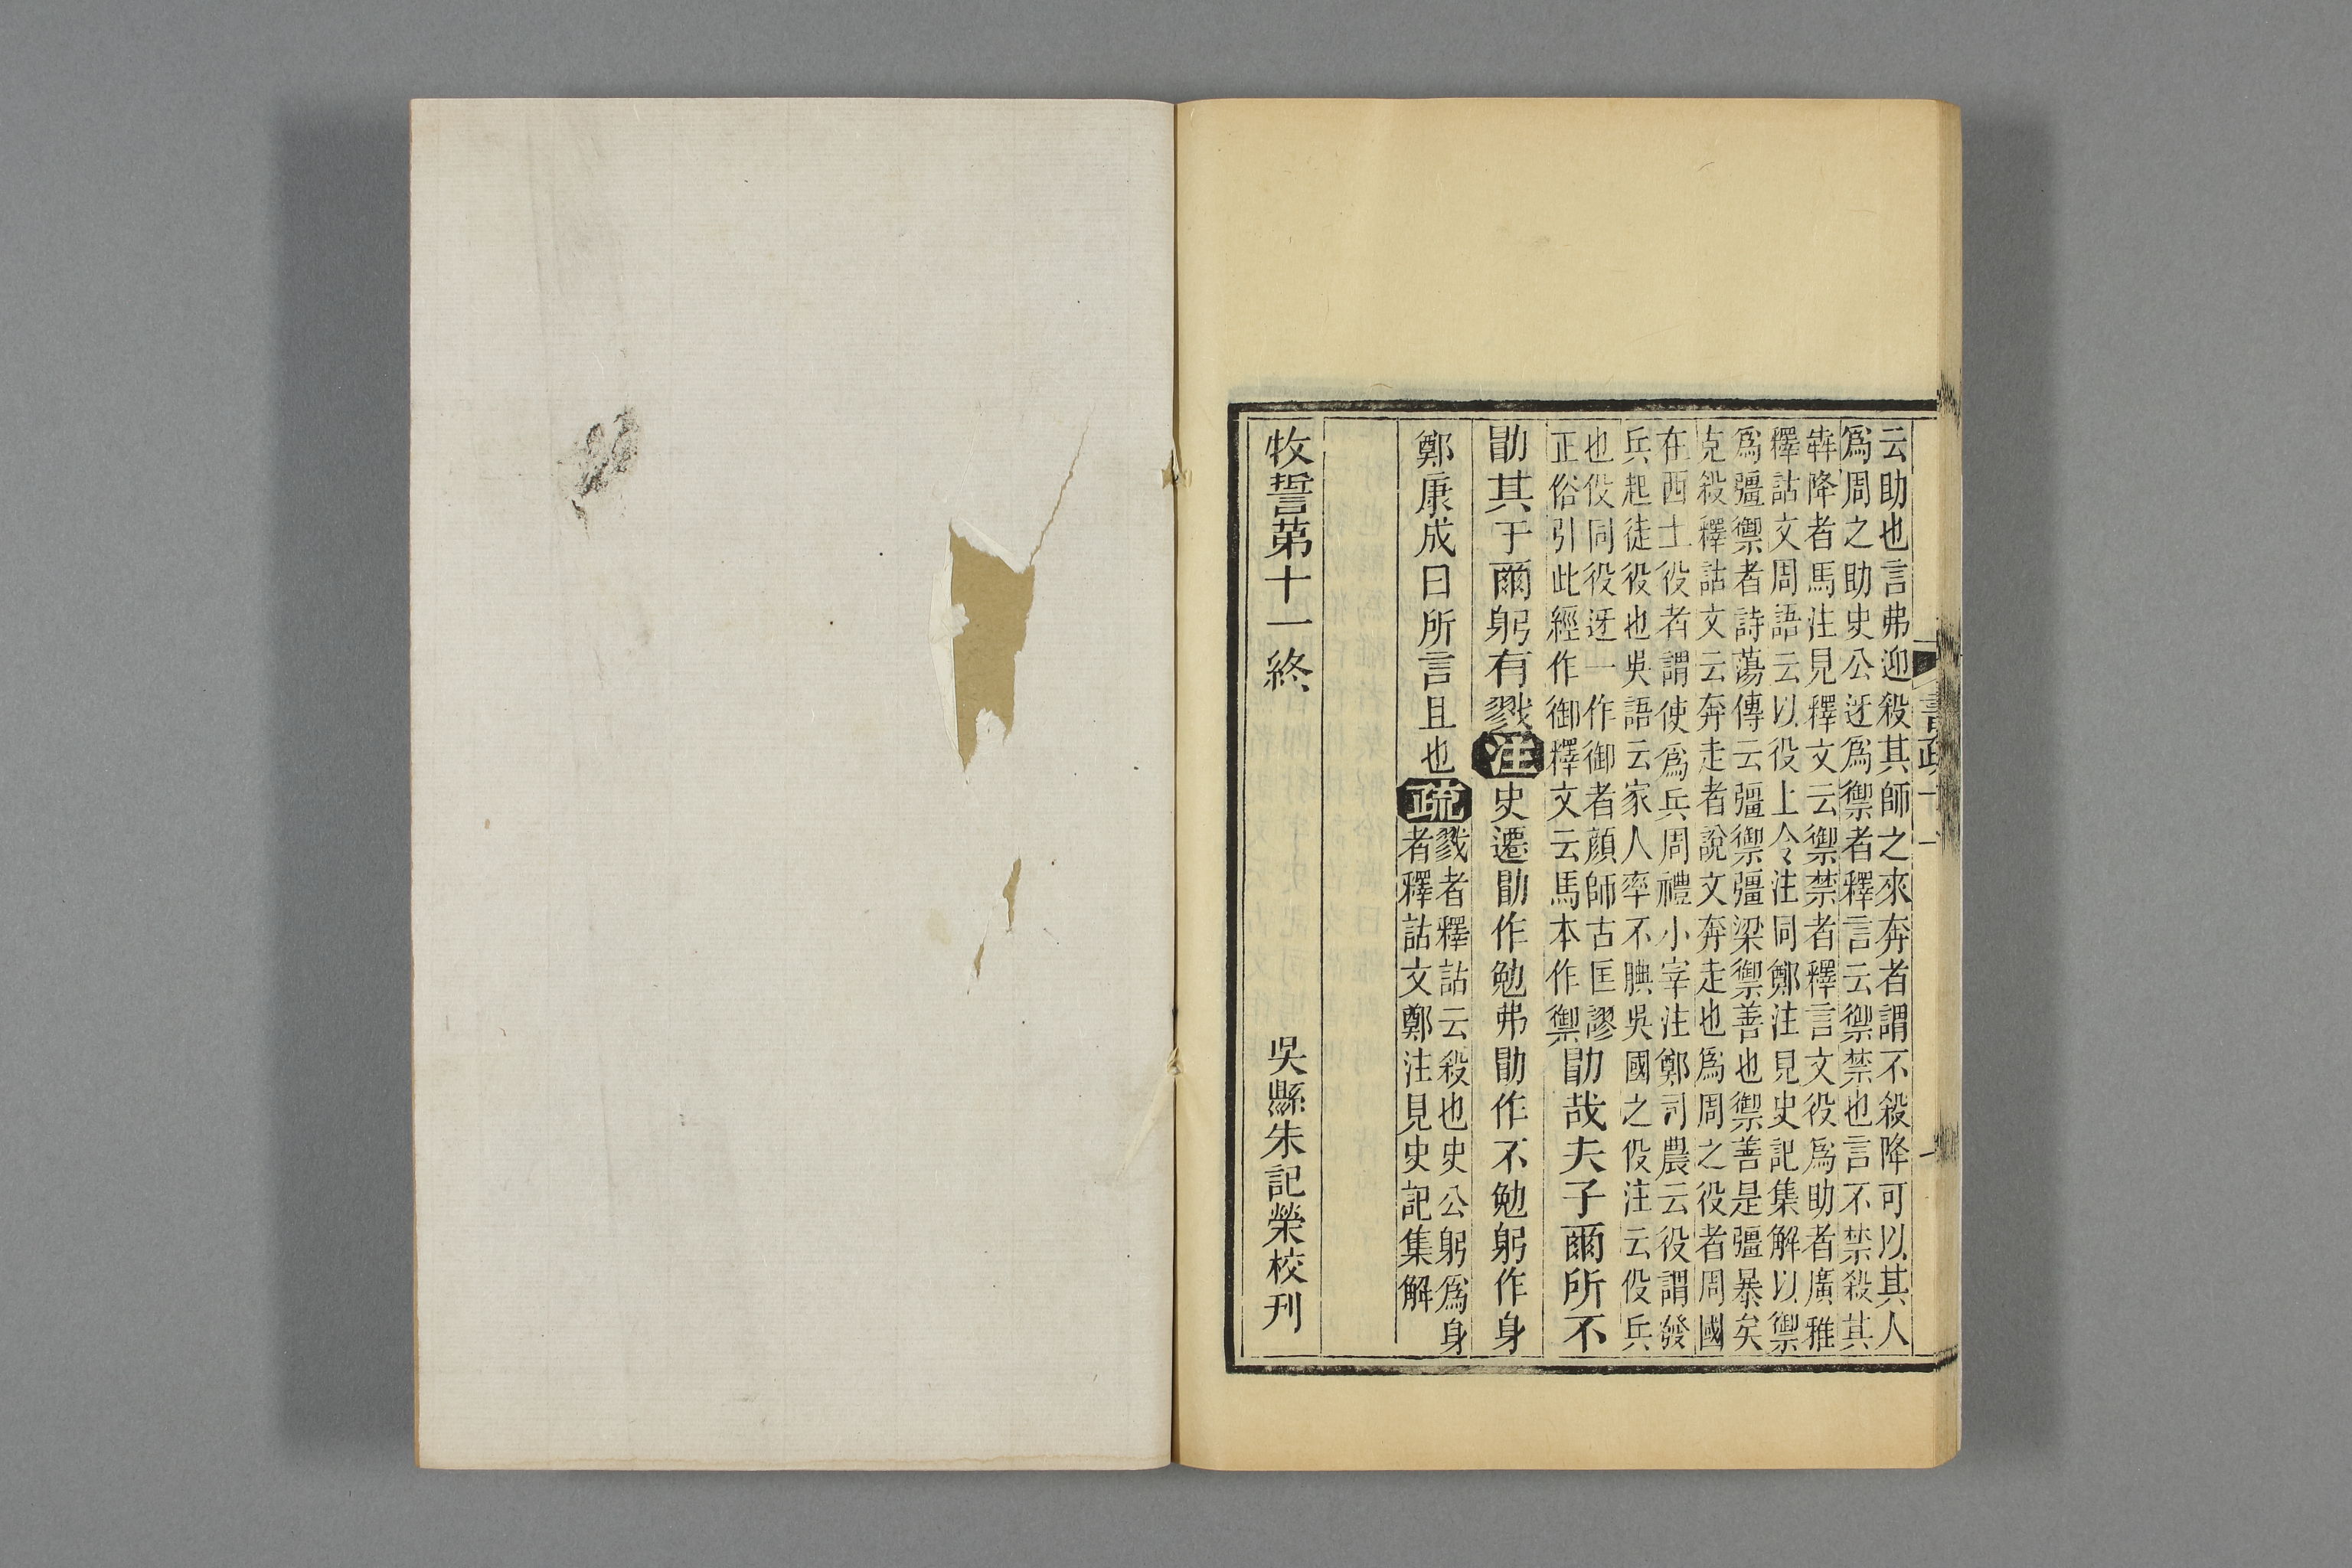 云助也言弗迎殺其師之來奔者謂不殺降可以其人
爲周之助史公迓爲禦者釋言云禦禁也言不禁殺其
犇降者馬注見釋文云禦禁者釋言文役爲助者廣雅
釋詁文周語云以役上令注同鄭注見史記集解以禦
爲彊禦者詩蕩傳云彊禦彊梁禦善也禦善是彊暴矣
克殺釋詁文云奔走者說文奔走也爲周之役者周國
在西土役者謂使爲兵周禮小宰注鄭司農云役謂發
兵起徒役也吳語云家人率不腆吳國之伇注云伇兵
也伇同役迓一作御者顏師古匡謬
正俗引此經作御釋文云馬本作禦
勖哉夫子爾所不
勖其于爾躬有戮注史遷勖作勉弗勖作不勉躬作身
鄭康成曰所言且也疏
戮者釋詁云殺也史公躬爲身
者釋詁文鄭注見史記集解
牧誓第十一終
吳縣朱記榮校刊